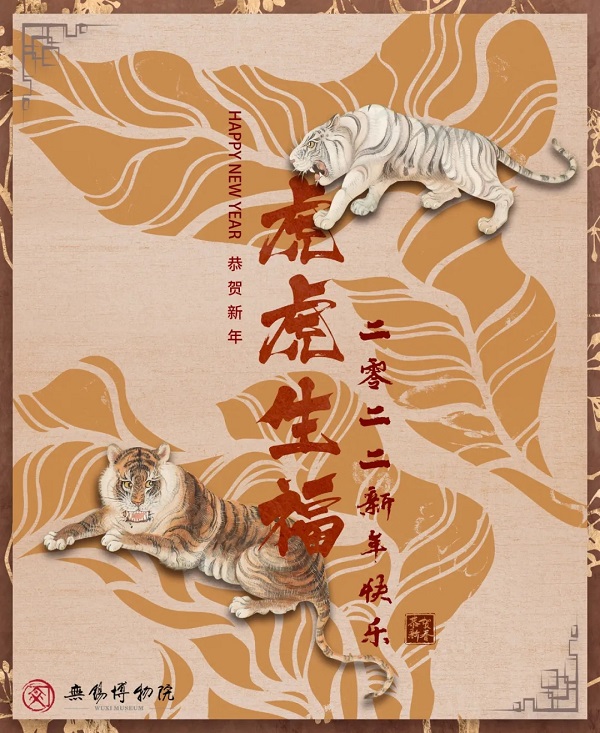 HAPPY NEW YEAR 恭贺新年
虎虎生福
二零二二新年快乐
恭贺
新春
無錫博物院
WUXI MUSEUM